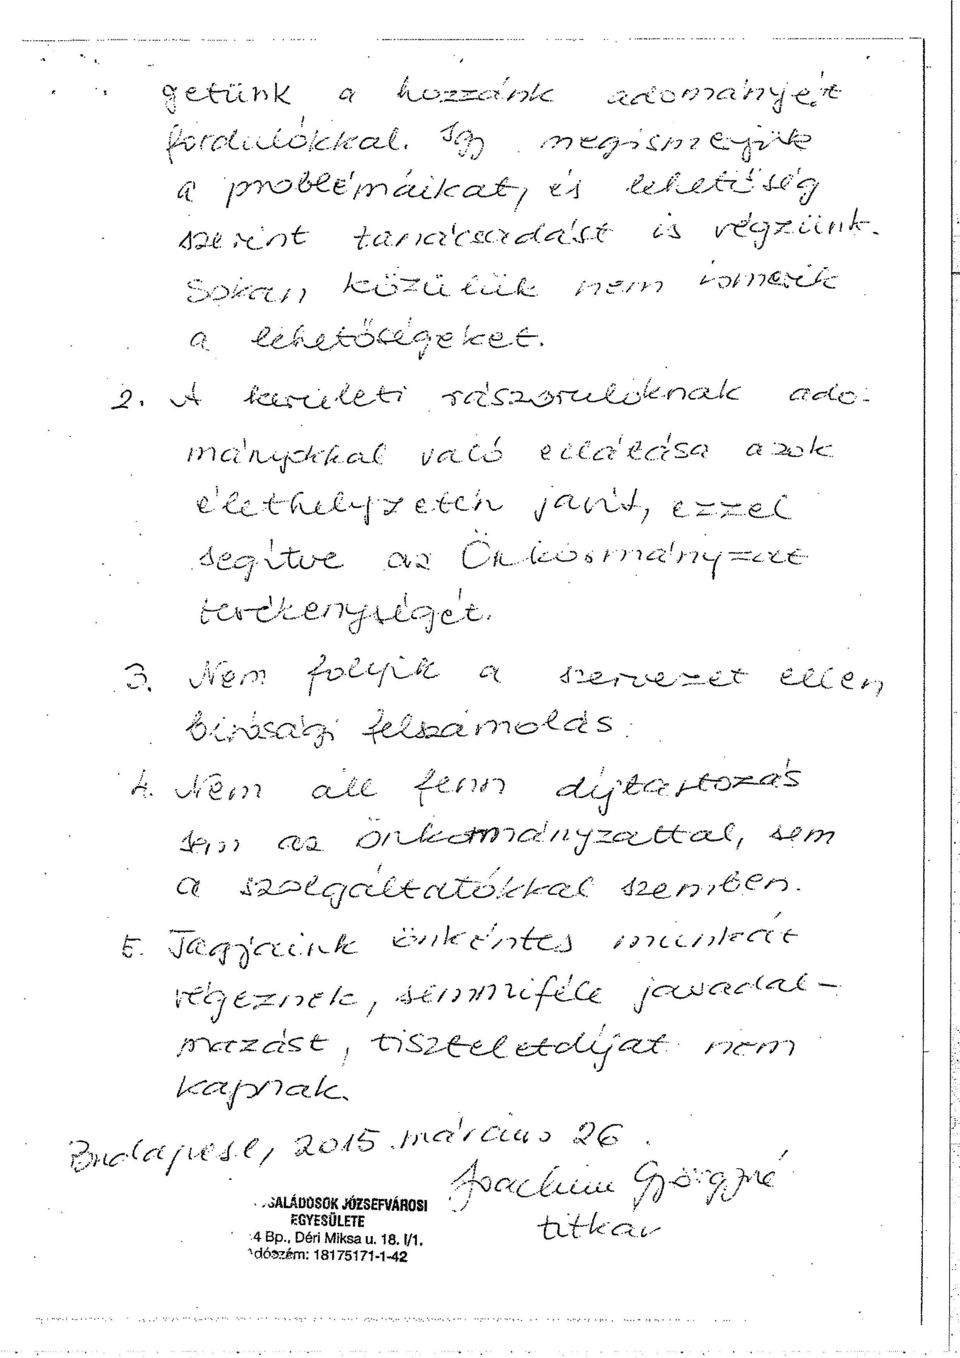 getünk a hozzánk adományért
fordulókkal. Így megismerjük
a problémáikat, és lehetőség
szerint tanácsadást is végzünk.
Sokan közülük nem ismerik
a lehetőségeket.
2. A kerületi rászorulóknak ado-
mányokkal való ellátása azok
élethelyzetén javít, ezzel
segítve az Önkormányzat
tevékenységét.
3. Nem folyik a szervezet ellen
bírósági felszámolás.
4. Nem áll fenn díjtartozás
sem az önkormányzattal, sem
a szolgáltatókkal szemben.
5. Tagjaink önkéntes munkát
végeznek, semmiféle javadal-
mazást, tiszteletdíjat nem
kapnak.
Budapest, 2015. március 26.
Joachim Györgyné
titkár
SALÁDOSOK JÓZSEFVÁROSI
EGYESÜLETE
4 Bp., Déri Miksa u. 18. I/1.
dószém: 18175171-1-42